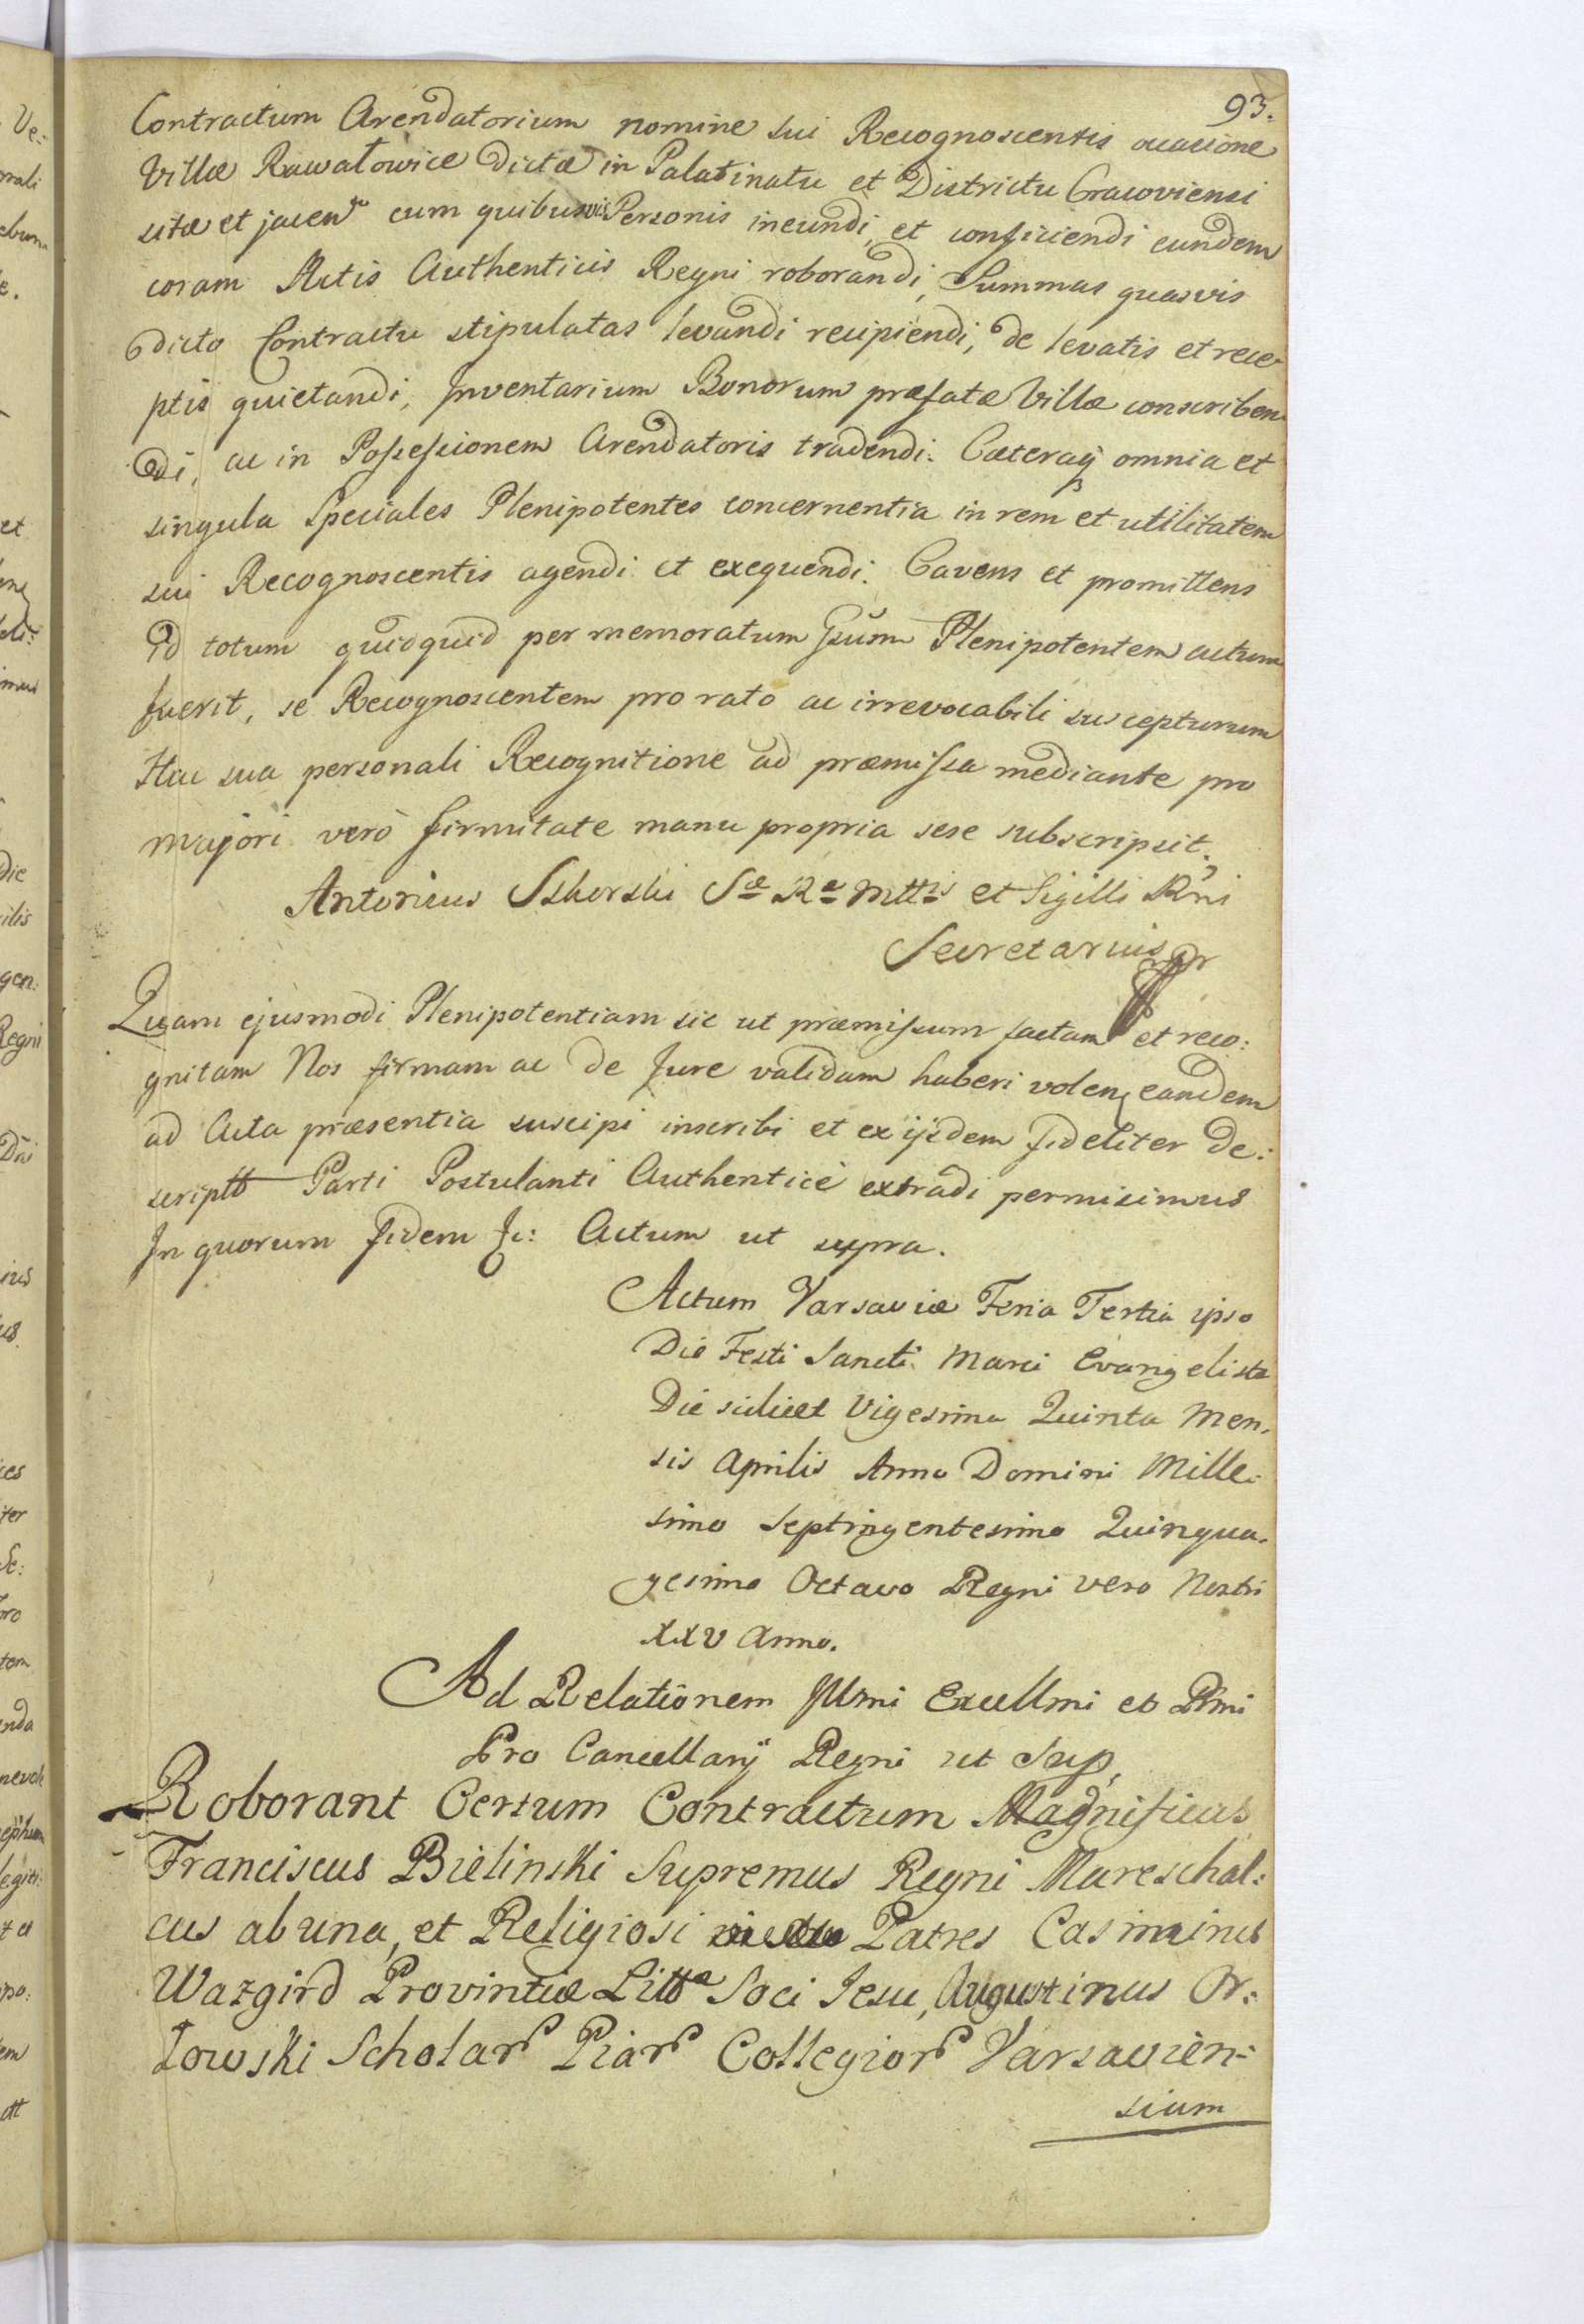 93.
Contractum Arendatorium nomine sui Recognoscentis occasione
Villæ Rawałowice dictæ in Palatinatu et Districtu Cracoviensi
sitæ et jacen cum quibusvis Personis ineundi, et conficiendi eundem
coram Actis Authenticis Regni roborandi, Summas quasvis
dicto Contractu stipulatas levandi recipiendi, de levatis et rece
ptis quietandi, Inventarium Bonorum præfatæ Villæ conscriben
di, ac in Possessionem Arendatoris tradendi. Cæteraq omnia et
singula Speciales Plenipotentes concernentia in rem et utilitatem
sui Recognoscentis agendi et exequendi. Cavens et promittens
Id totum quidquid per memoratum suum Plenipotentem actum
fuerit, se Recognoscentem pro rato ac irrevocabili suscepturum
Hac sua personali Recognitione ad præmissa mediante pro
majori verò firmitate manu propria sese subscripsit.
Antonius Sikorski Sæ Ræ Mttis et Sigilli Rni
Secretarius
Quam ejusmodi Plenipotentiam sic ut præmissum factam et reco:
gnitam Nos firmam ac de Jure validam haberi volen eandem
ad Acta præsentia suscipi inscribi et ex ijsdem fideliter de:
scriptt Parti Postulanti Authenticè extradi permisimus
In quorum fidem &c: Actum ut supra.
Actum Varsaviæ Feria Tertia ipso
Die Festi Sancti Marci Evangelistæ
Die scilicet Vigesima Quinta Men.
sis Aprilis Anno Domini Mille.
simo Septingentesimo Quinqua.
gesimo Octavo Regni vero Nostri
XXV Anno.
Ad Relationem Illmi Excellmi et Rmi
Pro Cancellarij Regni ut Sup,
Roborant Certum Contractum Magnificus
Franciscus Bielinski Supremus Regni Mareschal:
cus ab una, et Religiosi Patres Casimirus
Wazgird Provintiæ Littæ Soci Jesu, Augustinus Or:
łowski Scholar Piar Collegior Varsavien:
sium